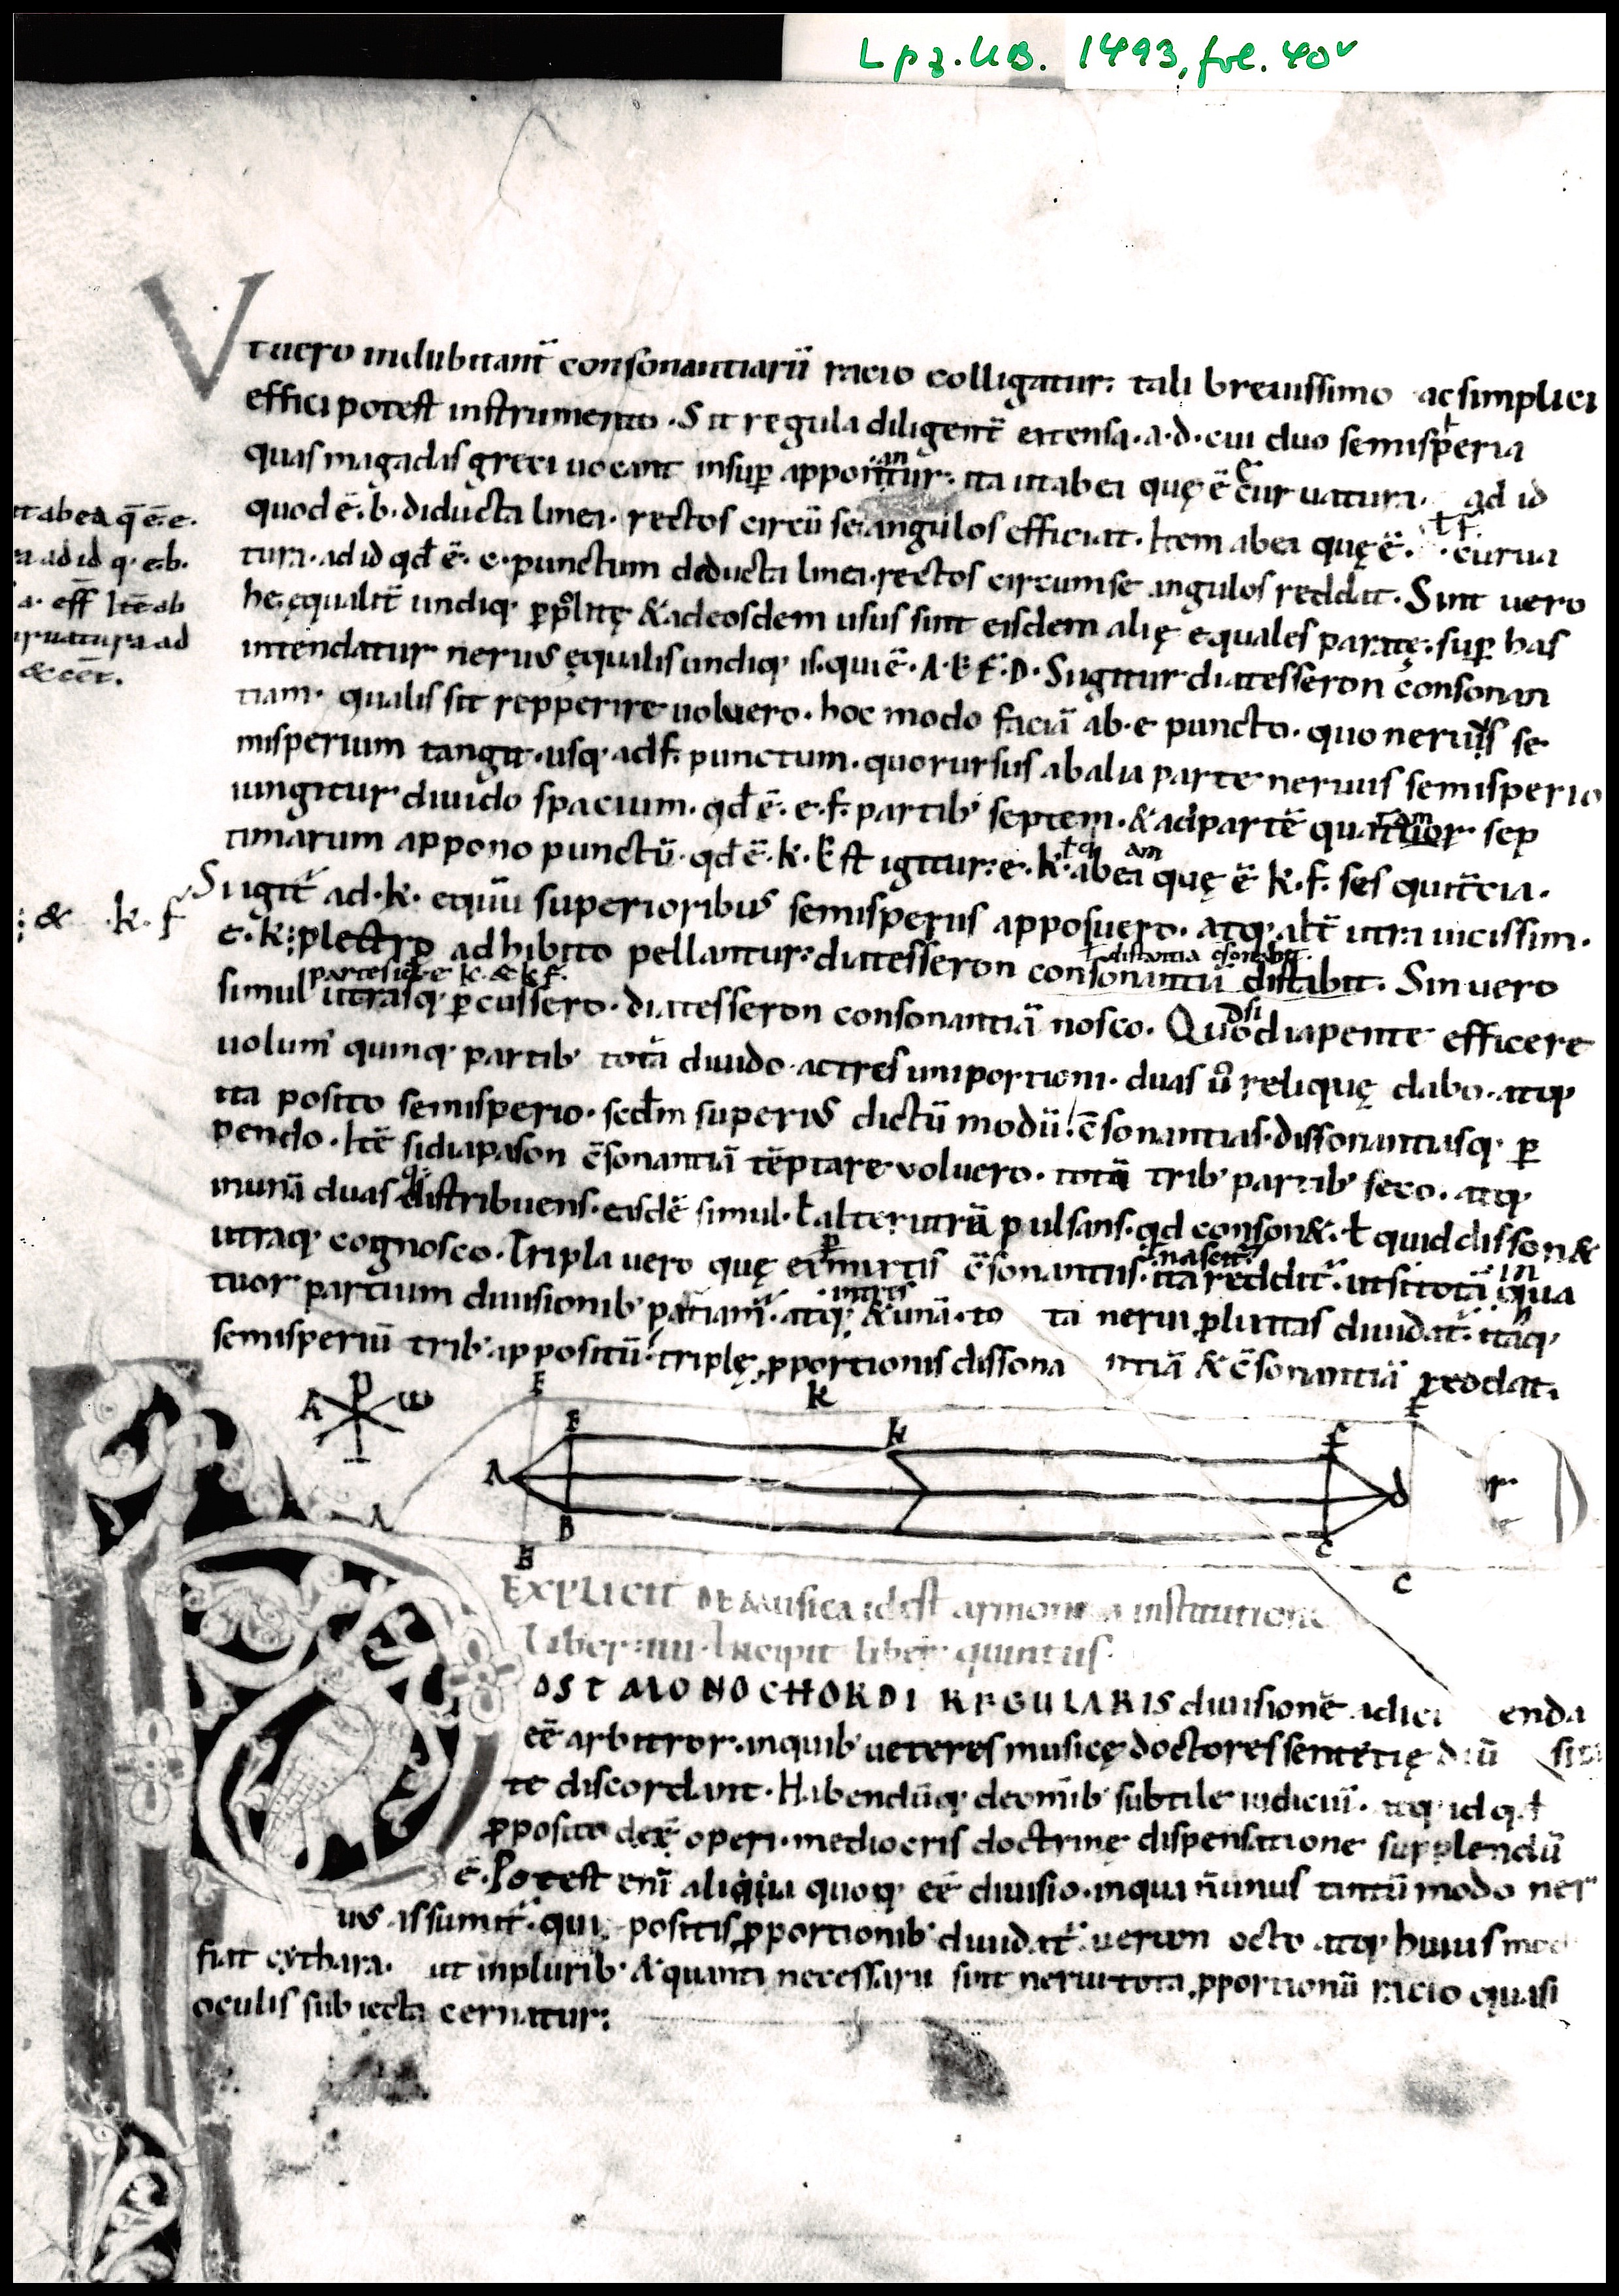 Lpz. UB. 1493, fol. 40v
Vt uero indubitanť consonantiarū racio colligatur: tali breuissimo ac simplici
effici potest instrumento. Sit regula diligenť extensa. a. d. cui duo semisperia
quas magadas greci uocant insup apponantur: ita ut ab ea quę ē e curuatura. ad id
quod ē. b. diducta linea. rectos circū se angulos efficiat. Item ab ea quę ē. ł f. curua
tura. ad id qđ ē. c. punctum deducta linea. rectos circum se angulos reddat. Sint uero
he ęqualiť undiq; ppolitę & ad eosdem usus sint eisdem alię equales paratę. sup has
intendatur neruus ęqualis undiq; is. qui ē. A. E F. D. Si igitur diatesseron consonan
tiam. qualis sit repperire uoluero. hoc modo faciā ab. e puncto. quo neruus se
misperium tangit. usq; ad f. punctum. quo rursus ab alia parte neruus semisperio
iungitur diuido spacium. qđ ē. e. f. partib; septem. & ad partē quartam sep
timarum appono punctū. qđ ē. k. Est igitur: e. k. ł ad ab ea am quę ē k. f. sesquitercia.
Si igiť ad. k. equū superioribus semisperiis apposuero. atq; alť utra uicissim.
e. k: plectro adhibito pellantur: diatesseron consonantiā distabit. Sin uero
ł distantia c̄sonabit.
partes id ē e k. & k f.
simul utrasq; pcussero. diatesseron consonantiā nosco. Quod si diapente efficere
uolum̄ quinq; partib; totā diuido. ac tres uni portioni. duas ū reliquę dabo. atq;
ita posito semisperio. scđm superius dictū modū. c̄sonantias. dissonantiasq; p
pendo. Itē si diapason c̄sonantiā tēptare uoluero. totā trib; partib; seco. atq;
in unā duas distribuens. easdē simul. ł alterutrā pulsans. qđ conson&. ł quid disson&
utraq; cognosco. Tripla uero quę ex p mixtis c̄sonantiis. nasciť ita reddiť. ut si totā in qua
tuor partium diuisionib; partiam̄. atq; intris & unā. to ta nerui plixitas diuidať. itaq;
semisperiū trib; appositū. triplę pportionis dissona ntiā & c̄sonantiā peddat.
ut ab ea q̄ ē. e.
ra ad id q. e. b.
a. eff Itē ab
uruatura ad
& cēt.
: & .k. f
A P ω
E k F
E k f
A d
B c
A D
B C
Explicit de musica id est armonica institutione
Liber. IIII. Incipit liber quintus.
OST MONOCHORDI REGULARIS diuisionē adici enda
eē arbitror. in quib; ueteres musicę doctores sentētię diū si
te discordant. Habendūq; de omīb; subtile iudiciū. atq; id q. ł
pposito deę operi. mediocris doctrinę dispensatione supplendū
ē. Potest eni aliqua quoq; eē diuisio. in qua n̄ unus tantū modo ner
uus assumiť. qui. positis pportionib; diuidať. uerum octo atq; huius mod
fiat cythara. ut in plurib; & quanti necessarii sint nerui tota pportionū racio quasi
oculis subiecta cernatur: